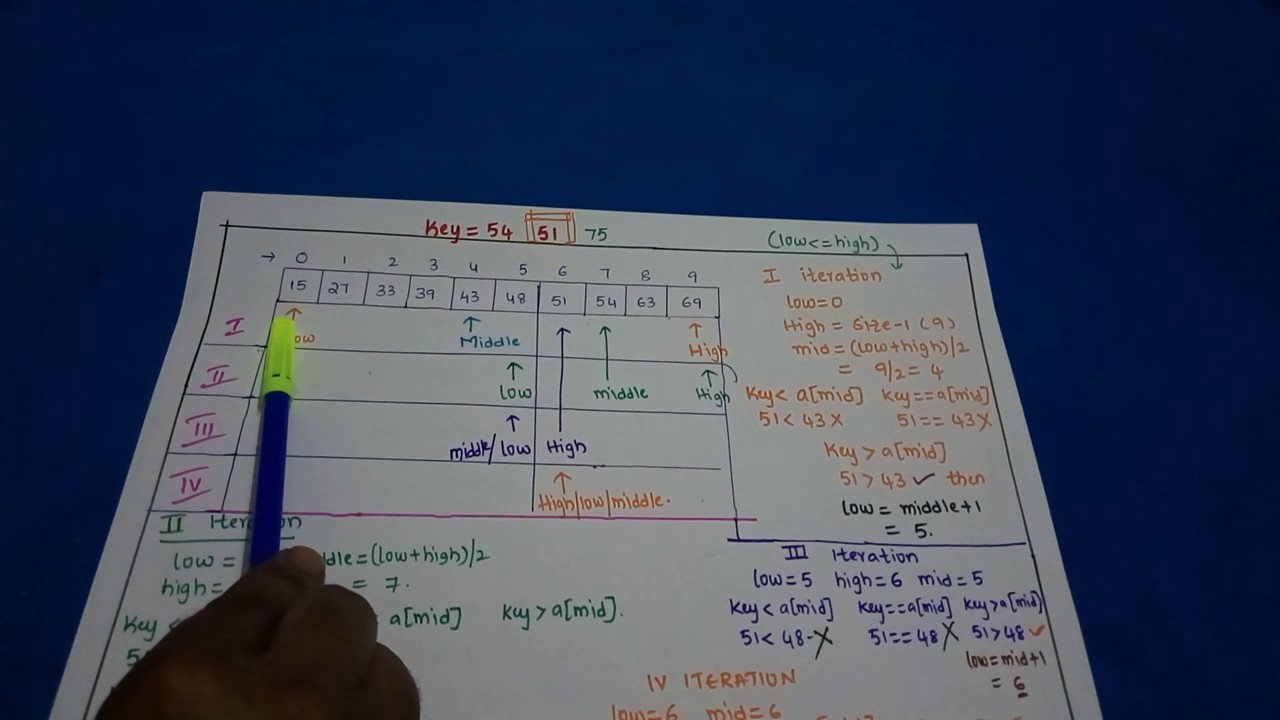 Key = 54 51 75
(low<=high)
→ 0 1 2 3 4 5 6 7 8 9
15 27 33 39 43 48 51 54 63 69
I Middle High
II low middle High
III middle/low High
IV High/low/middle.
I iteration
low=0
High = size-1 (9)
mid = (low+high)/2
= 9/2 = 4
Key< a[mid] Key==a[mid]
51 < 43 X 51 == 43 X
Key > a[mid]
51 > 43 ✓ then
low = middle+1
= 5.
II
low = =(low+high)/2
high= = 7.
Key a[mid] Key > a[mid].
III Iteration
low=5 high=6 mid=5
Key< a[mid] Key==a[mid] Key>a[mid]
51< 48-X 51==48 X 51>48 ✓
low=mid+1
= 6
IV ITERATION
low=6 mid=6